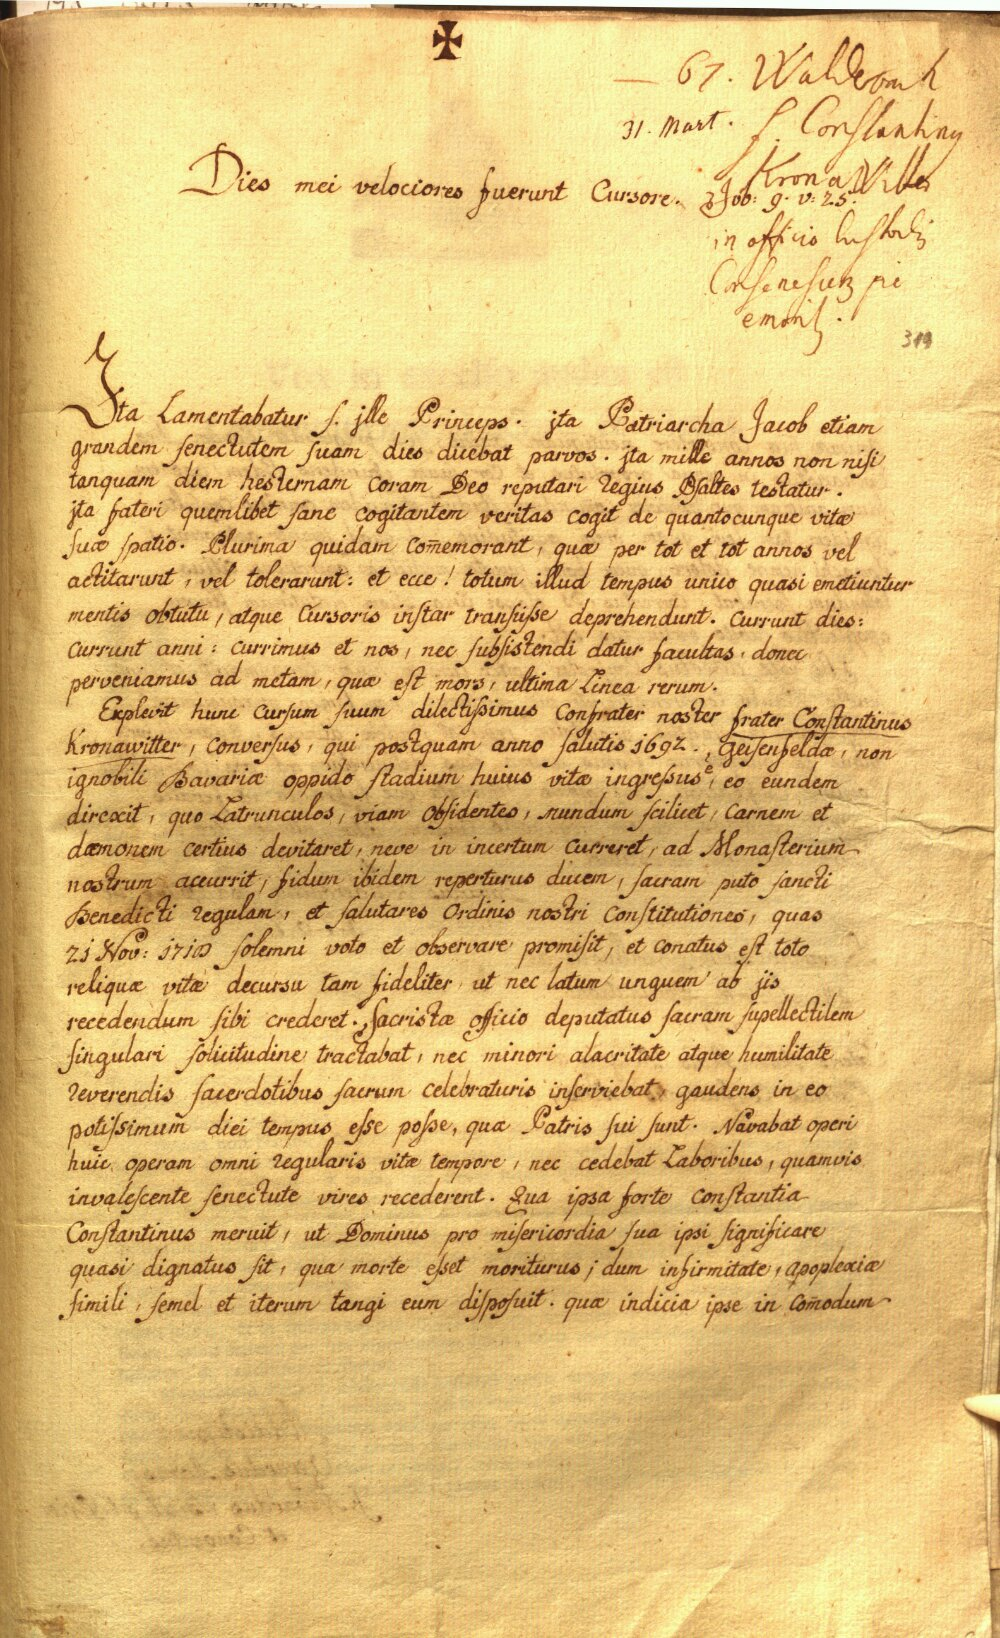 ✠
67. Walderbach
31. Mart. f. Constantinus
Kronawitter
Dies mei velociores fuerunt Cursore. Job: 9. v: 25.
in officio
emorit.
319
Ita Lamentabatur s. jlle Princeps. jta Patriarcha Jacob etiam
grandem senectutem suam dies dicebat parvos. jta mille annos non nisi
tanquam diem hesternam coram Deo reputari regius Psaltes testatur.
jta fateri quemlibet sane cogitantem veritas cogit de quantocunque vitæ
suæ spatio. Plurima quidam com̄emorant, quæ per tot et tot annos vel
actitarunt, vel tolerarunt: et ecce! totum illud tempus unico quasi emetiuntur
mentis obtutu, atque Cursoris instar transisse deprehendunt. Currunt dies:
currunt anni: currimus et nos, nec subsistendi datur facultas, donec
perveniamus ad metam, quæ est mors, ultima Linea rerum.
Explevit hunc cursum suum dilectissimus confrater noster frater Constantinus
Kronawitter, conversus, qui postquam anno salutis 1692. Geisenfeldæ, non
ignobili Bavariæ oppido stadium huius vitæ ingressus e, eo eundem
direxit, quo Latrunculos, viam obsidentes, mundum scilicet, Carnem et
dæmonem certius devitaret, neve in incertum curreret, ad Monasterium
nostrum accurrit, fidum ibidem reperturus ducem, sacram puto sancti
Benedicti regulam, et salutares ordinis nostri Constitutiones, quas
21 Nov: 1719 solemni voto et observare promisit, et conatus est toto
reliquæ vitæ decursu tam fideliter, ut nec latum unguem ab jis
recedendum sibi crederet. Sacristæ officio deputatus sacram supellectilem
singulari solicitudine tractabat, nec minori alacritate atque humilitate
reverendis sacerdotibus sacrum celebraturis inserviebat, gaudens in eo
potissimum diei tempus esse posse, quæ Patris sui sunt. Navabat operi
huic operam omni regularis vitæ tempore, nec cedebat Laboribus, quamvis
invalescente senectute vires recederent. Qua ipsa forte constantia
Constantinus meruit, ut Dominus pro misericordia sua ipsi significare
quasi dignatus sit, qua morte esset moriturus; dum infirmitate, apoplexiæ
simili, semel et iterum tangi eum disposuit. quæ indicia ipse in com̄odum